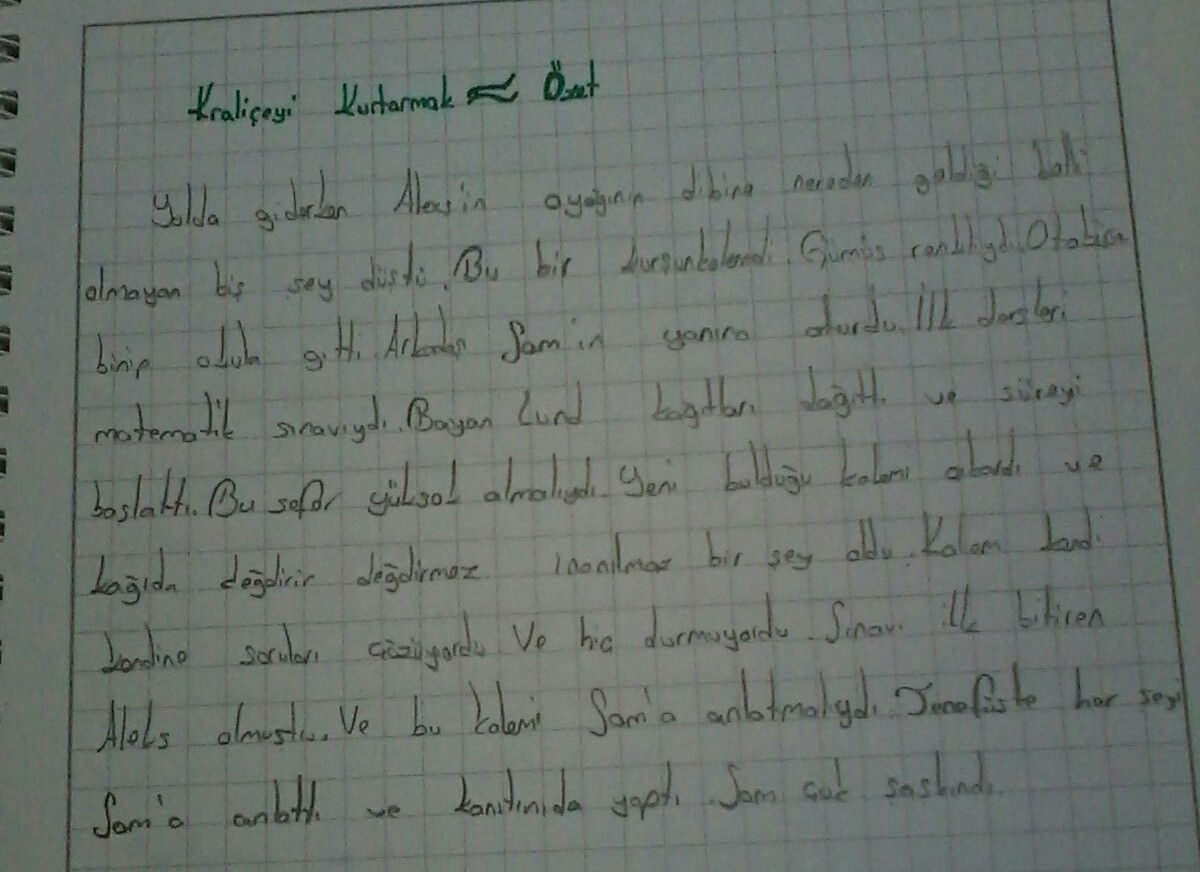 Kraliçeyi Kurtarmak ~ Özet
Yolda giderken Aleks'in ayağının dibine nereden geldiği belli
olmayan bir şey düştü. Bu bir kurşunkalemdi. Gümüş renkliydi. Otobüse
binip okula gitti. Arkadaşı Sam'in yanına oturdu. İlk dersleri
matematik sınavıydı. Bayan Lund kağıtları dağıttı ve süreyi
başlattı. Bu sefer yüksek almalıydı. Yeni bulduğu kalemi çıkardı ve
kağıda değdirir değdirmez inanılmaz bir şey oldu. Kalem kendi
kendine soruları çözüyordu Ve hiç durmuyordu. Sınavı ilk bitiren
Aleks olmuştu. Ve bu kalemi Sam'a anlatmalıydı. Teneffüste her şeyi
Sam'a anlattı ve kanıtınıda yaptı. Sam çok şaşkındı.